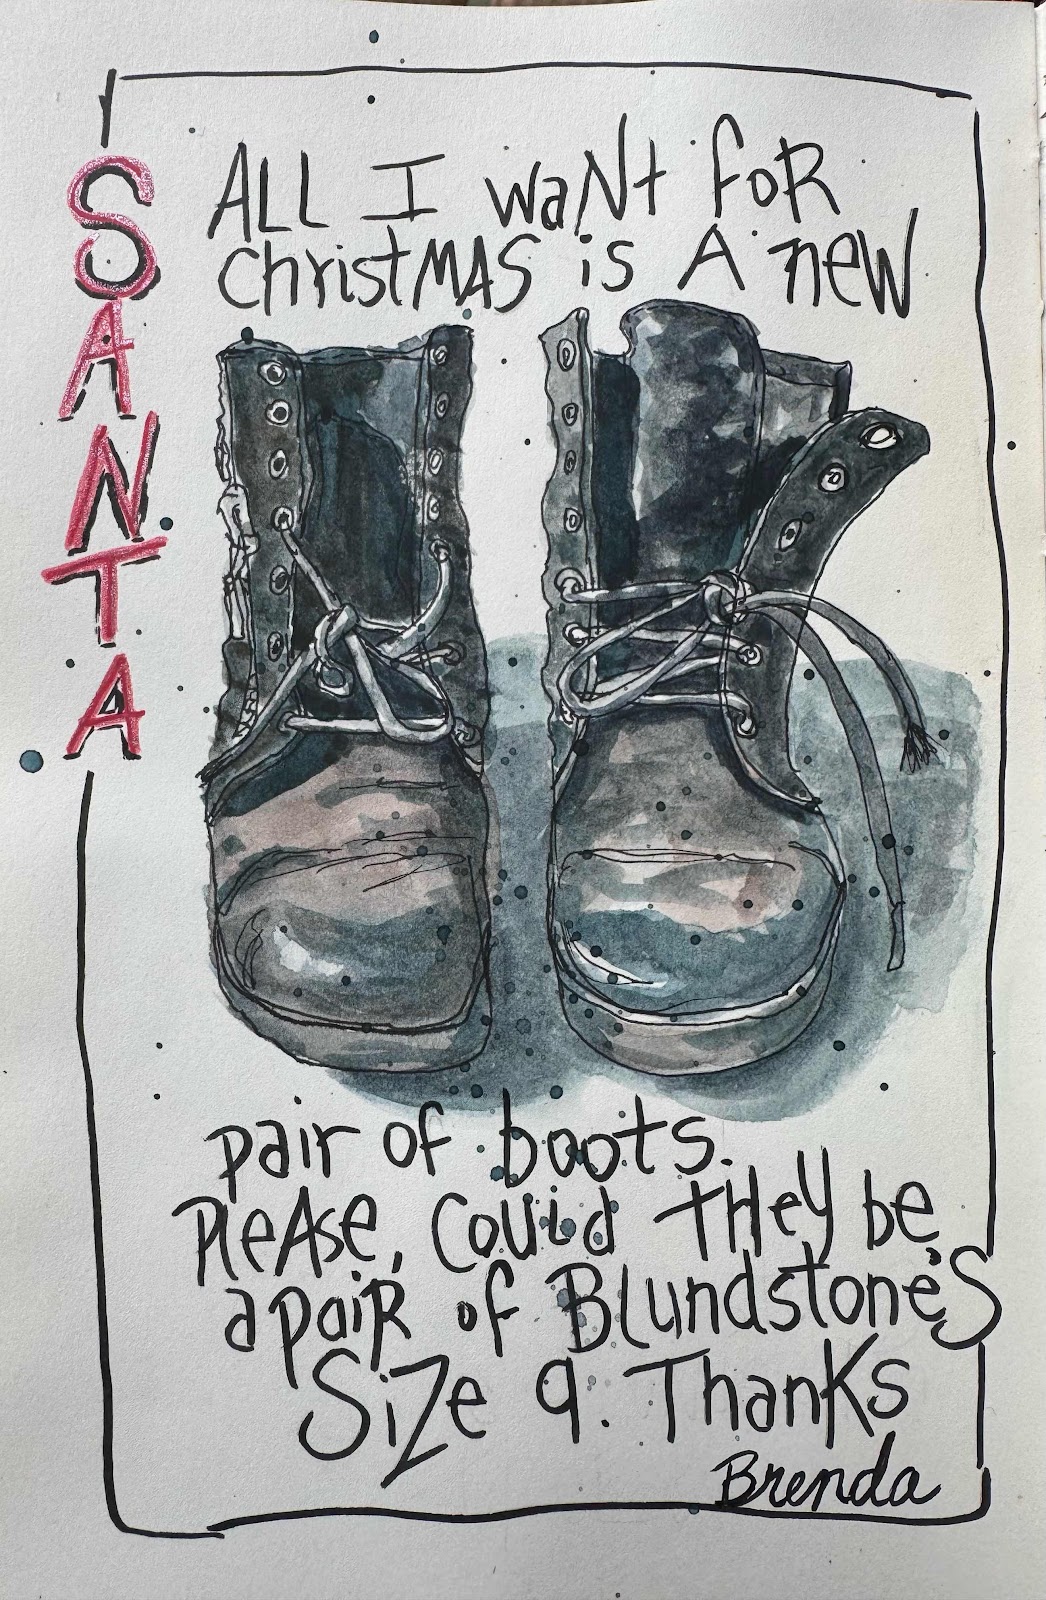 SANTA
ALL I waNt foR
christMAS is A new
pair of boots.
PleAse, Could THey be
a paiR of BLundstone'S
SiZe 9. ThanKs
Brenda